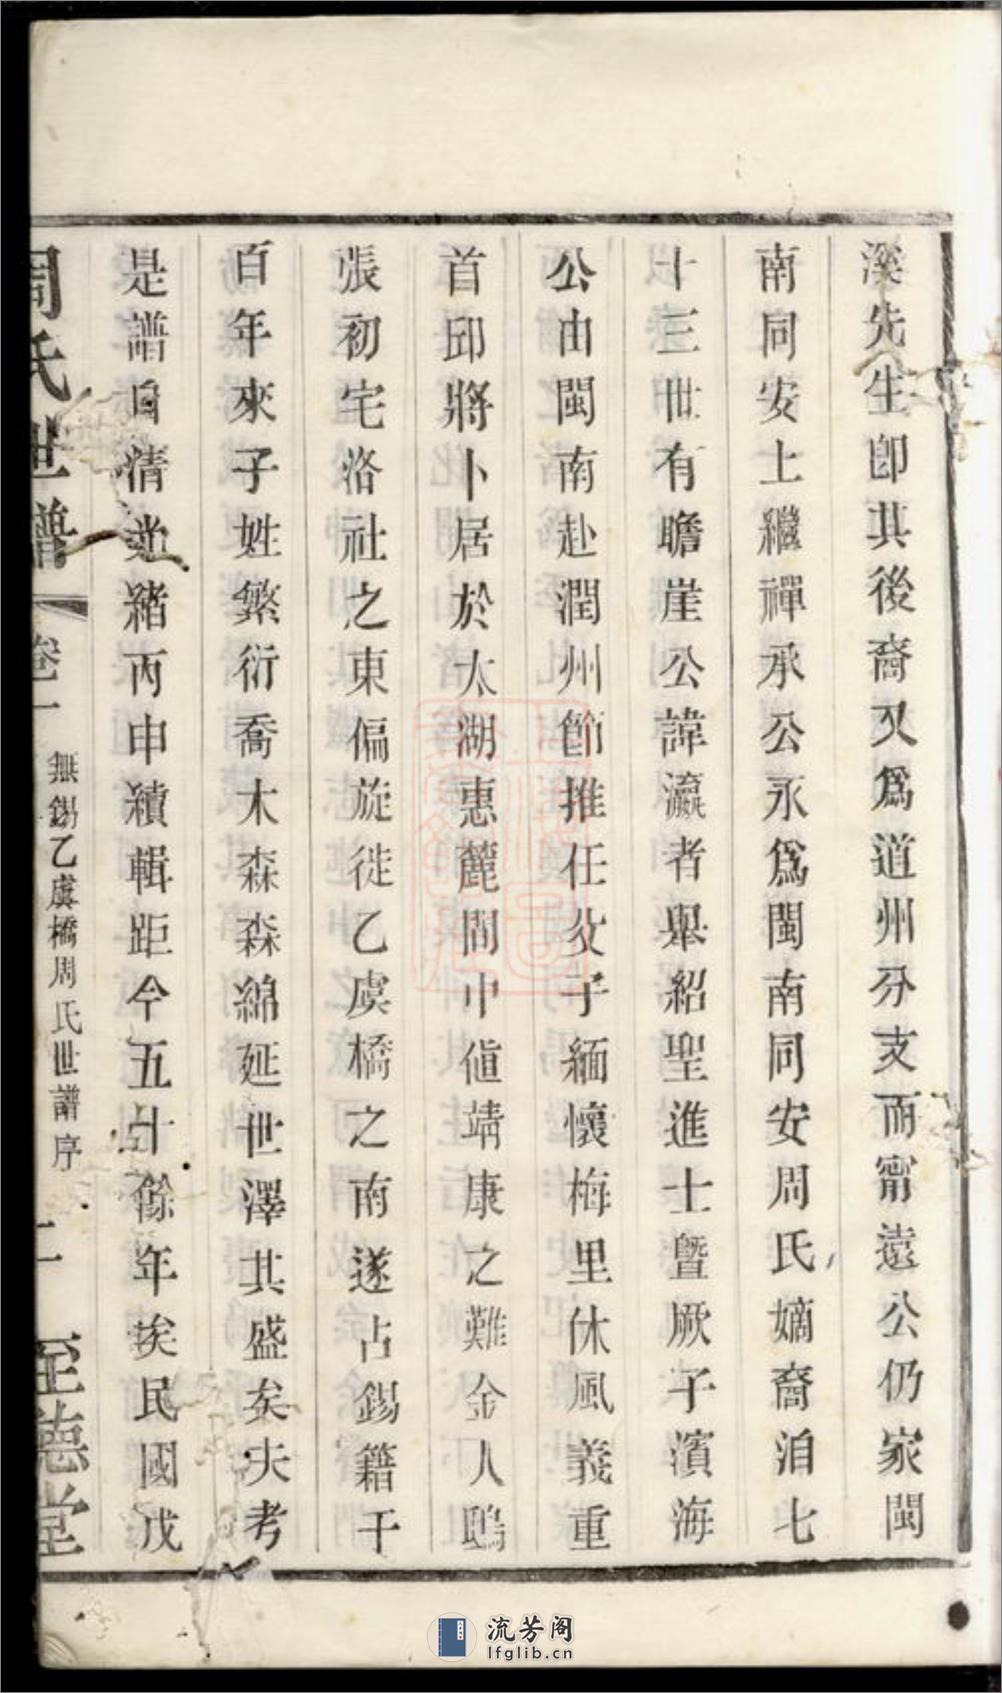 溪先生卽其後裔又爲道州分支而甯遠公仍家閩
南同安上繼禪承公永爲閩南同安周氏嫡裔洎七
十三世有瞻崖公諱瀛者舉紹聖進士曁厥子濱海
公由閩南赴潤州節推任父子緬懷梅里休風義重
首邱將卜居於太湖惠麓間中値靖康之難金人鴟
張初宅洛社之東偏旋徙乙虞橋之南遂占錫籍千
百年來子姓繁衍喬木森森綿延世澤其盛矣夫考
是譜自清光緒丙申續輯距今五十餘年挨民國戊
周氏世譜 卷一 無錫乙虞橋周氏世譜序 二 至德堂
流芳阁
lfglib.cn